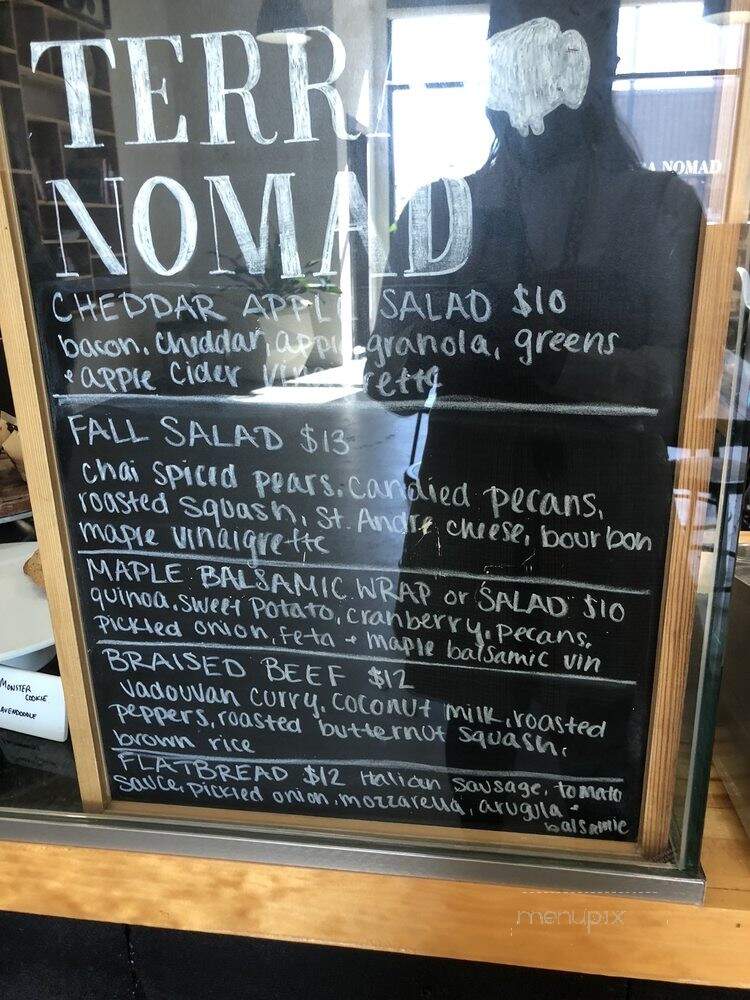 TERRA
NOMAD
A NOMAD
CHEDDAR APPLE SALAD $10
bacon, cheddar, apple, granola, greens
+ apple cider vinaigrette
FALL SALAD $13
chai spiced pears, candied pecans,
roasted squash, St. Andre cheese, bourbon
maple vinaigrette
MAPLE BALSAMIC WRAP or SALAD $10
quinoa, sweet potato, cranberry, pecans,
pickled onion, feta + maple balsamic vin
BRAISED BEEF $12
vadouvan curry, coconut milk, roasted
peppers, roasted butternut squash,
brown rice
FLATBREAD $12 Italian sausage, tomato
sauce, pickled onion, mozzarella, arugula +
balsamic
MONSTER
COOKIE
menupix